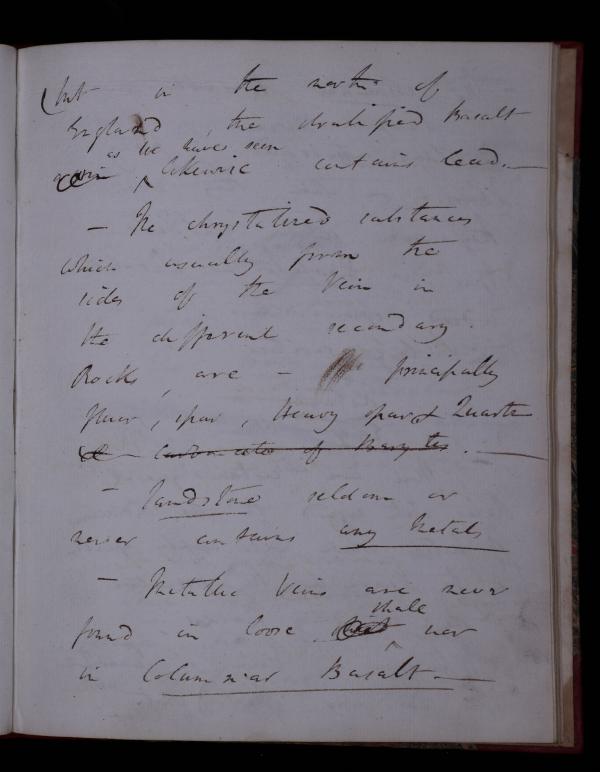 but in the north of
England, the stratified Basalt
as we have seen
likewise contains lead. —
— The chrystalized substances
which usually form the
sides of the Vein in
the different secondary
Rocks, are — principally
fluor, spar, Heavy spar & Quartz
Carbonate of Barytes. —
— Sandstone seldom or
never contains any Metals
— Metallic Veins are never
shale
found in loose nor
in Columnar Basalt. —